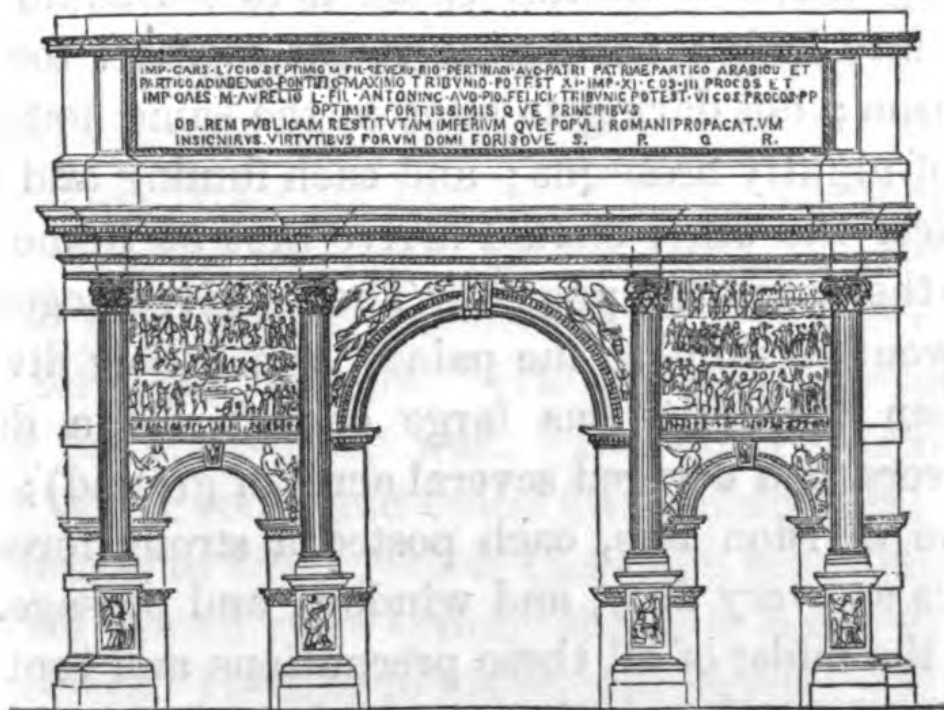 IMP·CAHS·LVCIO SEPTIMIO M FIL·SEVERO·BIO·PERTINACI·AVG·PATRI PATRIAE PARTICO ARABICU ET
PARTICO ADIABENICO·PONTIFIC MAXIMO TRIBVNIO·POTEST XI·IMP·XI·COS·III PROCOS ET
IMP CAES M·AVRELIO L·FIL·ANTONINC·AVG·PIO·FELICI·TRIBVNIC POTEST·VI COS PROCOS·PP
OPTIMIS FORTISSIMIS QVE PRINCIPIBVS
OB·REM PVBLICAM RESTITVTAM IMPERIVM QVE POPVLI ROMANI PROPACAT.VM
INSICNIRVS·VIRTVTIBVS FORVM DOMI FORISQVE S. P. Q R.